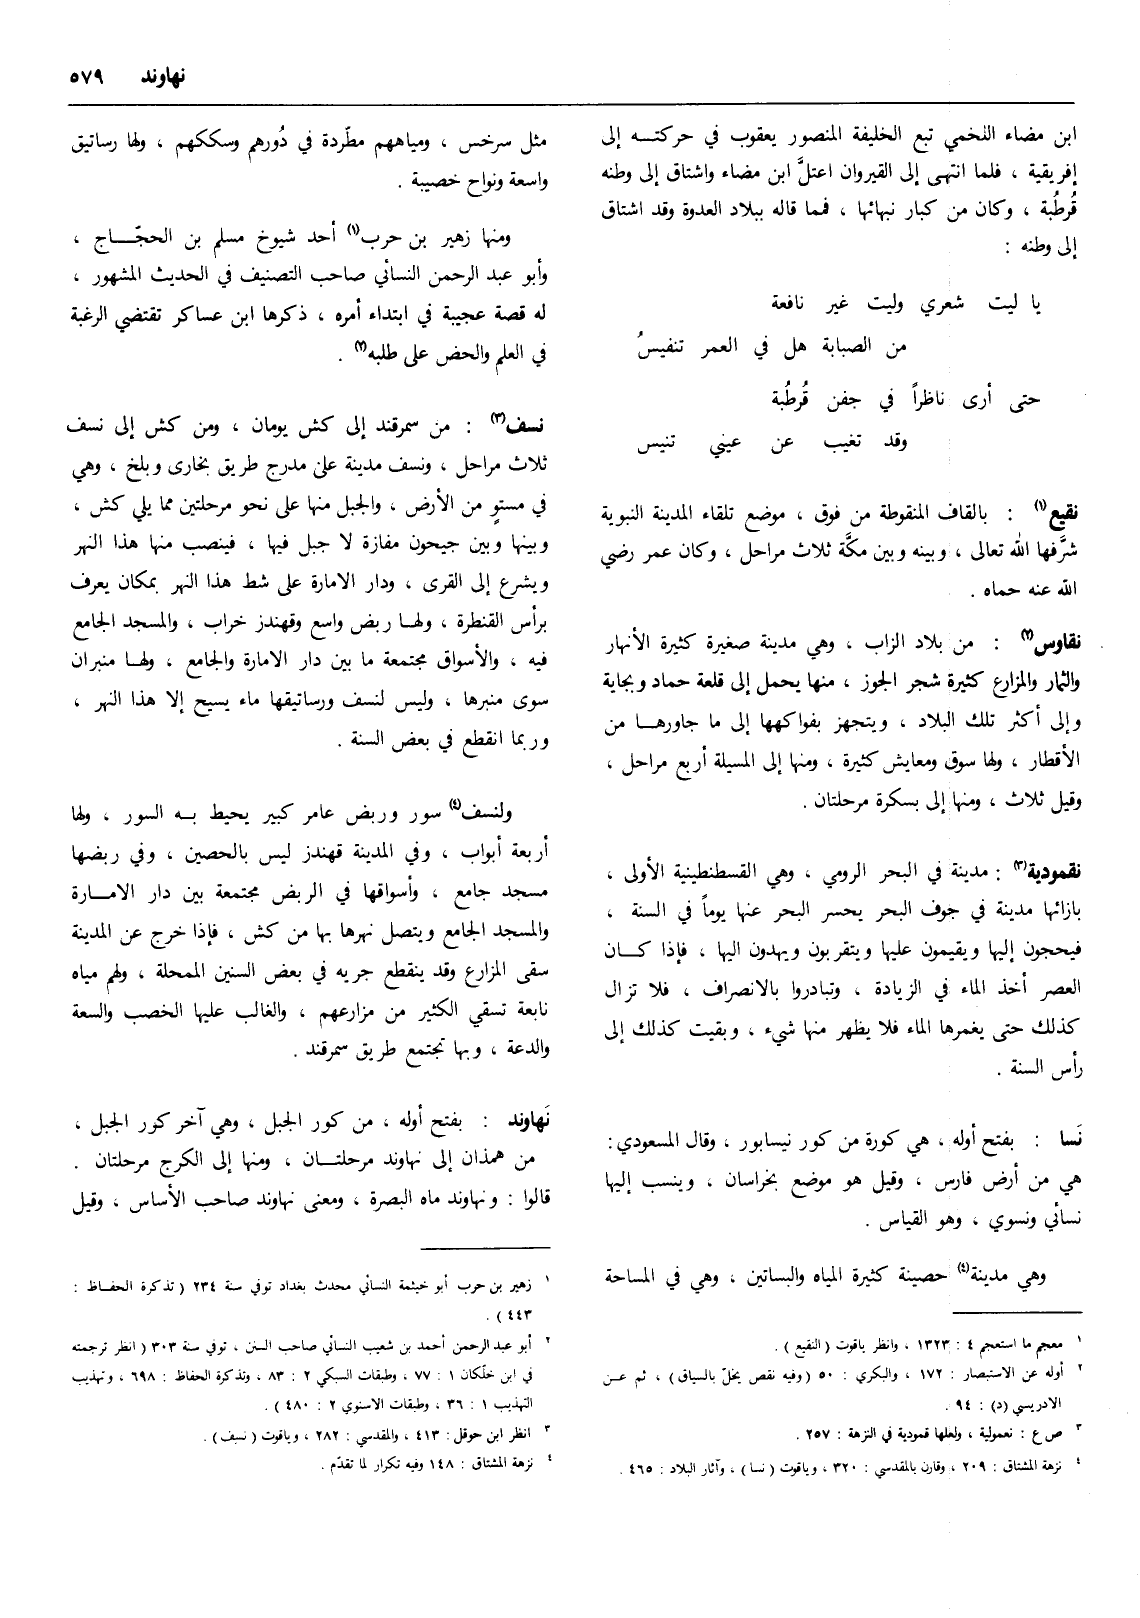 نهاوند ٥٧٩
ابن مضاء اللخمي تبع الخليفة المنصور يعقوب في حركتـــه إلى
إفريقية ، فلما انتهى إلى القيروان اعتلَّ ابن مضاء واشتاق إلى وطنه
قُرطُبة ، وكان من كبار نبهائها ، فما قاله ببلاد العدوة وقد اشتاق
إلى وطنه :
يا ليت شعري وليت غير نافعة
من الصبابة هل في العمر تنفيسُ
حتى أرى ناظراً في جفن قُرطُبة
وقد تغيب عن عيني تنيس
نقيع(١) : بالقاف المنقوطة من فوق ، موضع تلقاء المدينة النبوية
شرَّفها الله تعالى ، وبينه وبين مكَّة ثلاث مراحل ، وكان عمر رضي
الله عنه حماه .
نقاوس(٢) : من بلاد الزاب ، وهي مدينة صغيرة كثيرة الأنهار
والثمار والمزارع كثيرة شجر الجوز ، منها يحمل إلى قلعة حماد وبجاية
وإلى أكثر تلك البلاد ، ويتجهز بفواكهها إلى ما جاورهـــا من
الأقطار ، ولها سوق ومعايش كثيرة ، ومنها إلى المسيلة أربع مراحل ،
وقيل ثلاث ، ومنها إلى بسكرة مرحلتان .
نقمودية(٣) : مدينة في البحر الرومي ، وهي القسطنطينية الأولى ،
بازائها مدينة في جوف البحر يحسر البحر عنها يوماً في السنة ،
فيحجون إليها ويقيمون عليها ويتقربون ويهدون اليها ، فإذا كـــان
العصر أخذ الماء في الزيادة ، وتبادروا بالانصراف ، فلا تزال
كذلك حتى يغمرها الماء فلا يظهر منها شيء ، وبقيت كذلك إلى
رأس السنة .
نَسا : بفتح أوله ، هي كورة من كور نيسابور ، وقال المسعودي :
هي من أرض فارس ، وقيل هو موضع بخراسان ، وينسب إليها
نسائي ونسوي ، وهو القياس .
وهي مدينة(٤) حصينة كثيرة المياه والبساتين ، وهي في المساحة
١ معجم ما استعجم ٤ : ١٣٢٣ ، وانظر ياقوت ( النقيع ) .
٢ أوله عن الاستبصار : ١٧٢ ، والبكري : ٥٠ (وفيه نقص يخلّ بالسياق) ، ثم عـــن
الادريسي (د) : ٩٤ .
٣ ص ع : نعمولية ، ولعلها قمودية في النزهة : ٢٥٧ .
٤ نزهة المشتاق : ٢٠٩ ، وقارن بالمقدسي : ٣٢٠ ، وياقوت ( نسا ) ، وآثار البلاد : ٤٦٥ .
مثل سرخس ، ومياههم مطّردة في دُورهم وسككهم ، ولها رساتيق
واسعة ونواح خصيبة .
ومنها زهير بن حرب(١) أحد شيوخ مسلم بن الحجّـــاج ،
وأبو عبد الرحمن النسائي صاحب التصنيف في الحديث المشهور ،
له قصة عجيبة في ابتداء أمره ، ذكرها ابن عساكر تقتضي الرغبة
في العلم والحض على طلبه(٢) .
نسف(٣) : من سمرقند إلى كش يومان ، ومن كش إلى نسف
ثلاث مراحل ، ونسف مدينة على مدرج طريق بخارى وبلخ ، وهي
في مستوٍ من الأرض ، والجبل منها على نحو مرحلتين مما يلي كش ،
وبينها وبين جيحون مفازة لا جبل فيها ، فينصب منها هذا النهر
ويشرع إلى القرى ، ودار الامارة على شط هذا النهر بمكان يعرف
برأس القنطرة ، ولهـــا ربض واسع وقهندز خراب ، والمسجد الجامع
فيه ، والأسواق مجتمعة ما بين دار الامارة والجامع ، ولهـــا منبران
سوى منبرها ، وليس لنسف ورساتيقها ماء يسيح إلا هذا النهر ،
وربما انقطع في بعض السنة .
ولنسف(٤) سور وربض عامر كبير يحيط بـــه السور ، ولها
أربعة أبواب ، وفي المدينة قهندز ليس بالحصين ، وفي ربضها
مسجد جامع ، وأسواقها في الربض مجتمعة بين دار الامـــارة
والمسجد الجامع ويتصل نهرها بها من كش ، فإذا خرج عن المدينة
سقى المزارع وقد ينقطع جريه في بعض السنين الممحلة ، ولهم مياه
نابعة تسقي الكثير من مزارعهم ، والغالب عليها الخصب والسعة
والدعة ، وبها تجتمع طريق سمرقند .
نَهاوند : بفتح أوله ، من كور الجبل ، وهي آخر كور الجبل ،
من همذان إلى نهاوند مرحلتـــان ، ومنها إلى الكرج مرحلتان .
قالوا : ونهاوند ماه البصرة ، ومعنى نهاوند صاحب الأساس ، وقيل
١ زهير بن حرب أبو خيثمة النسائي محدث بغداد توفي سنة ٢٣٤ ( تذكرة الحفاظ :
٤٤٣ ) .
٢ أبو عبد الرحمن أحمد بن شعيب النسائي صاحب السنن ، توفي سنة ٣٠٣ ( انظر ترجمته
في ابن خلّكان ١ : ٧٧ ، وطبقات السبكي ٢ : ٨٣ ، وتذكرة الحفاظ : ٦٩٨ ، وتهذيب
التهذيب ١ : ٣٦ ، وطبقات الاسنوي ٢ : ٤٨٠ ) .
٣ انظر ابن حوقل : ٤١٣ ، والمقدسي : ٢٨٢ ، وياقوت ( نسف ) .
٤ نزهة المشتاق : ١٤٨ وفيه تكرار لما تقدّم .